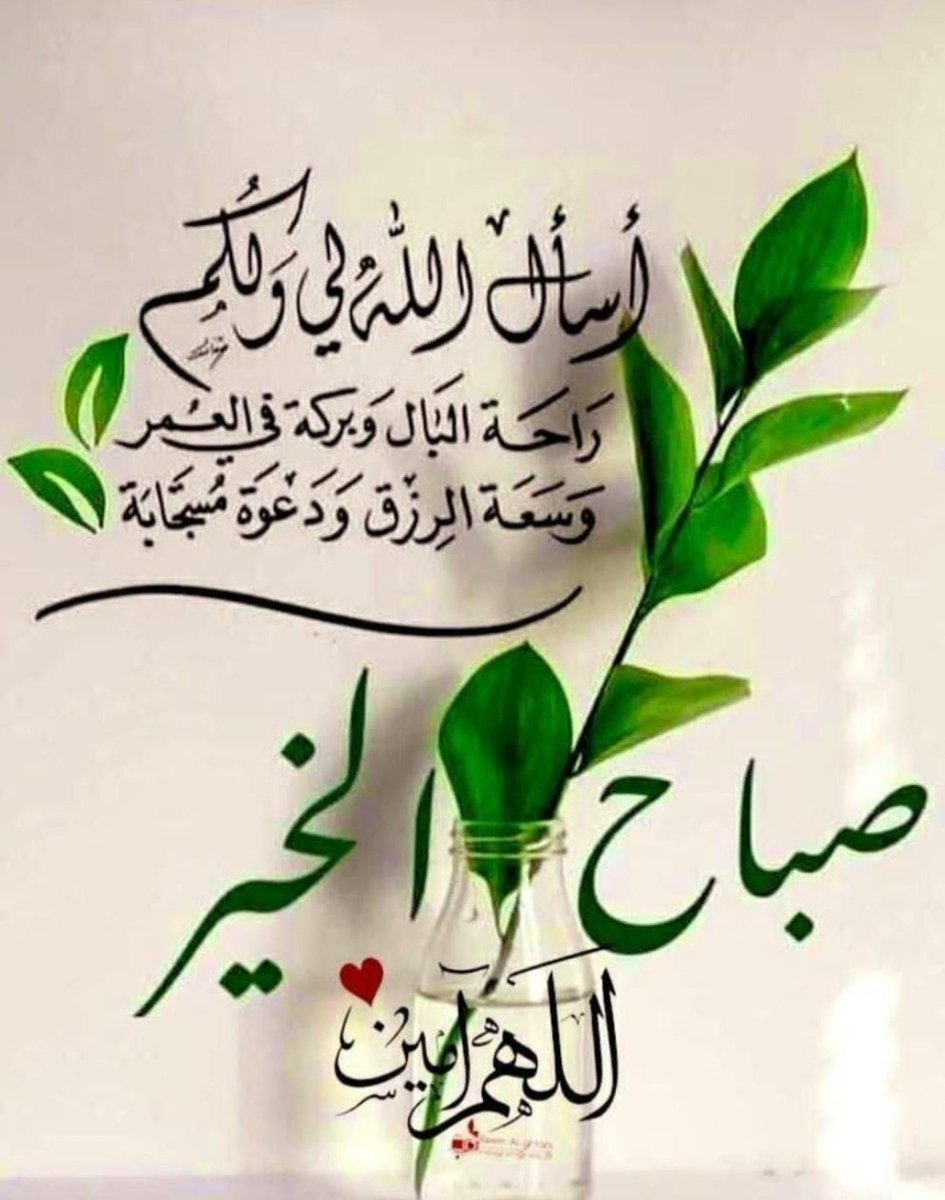 أسأل اللّٰهُ لي وَلكُم
رَاحَة البَال وَبركة في العُمر
وَسَعَة الرِزْق وَدَعْوَة مُستجَابَة
صباح الخير
اللهم آمين